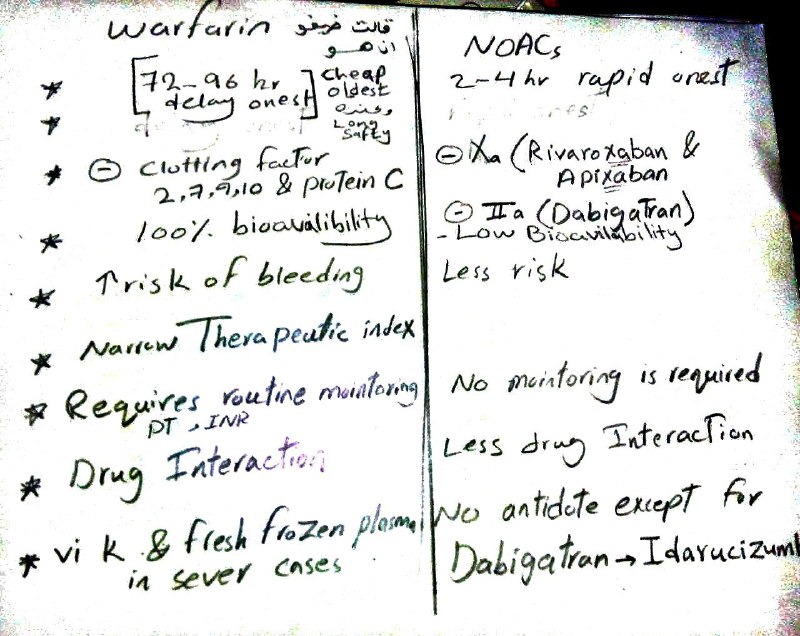 warfarin
72-96 hr
delay onest
cheap
oldest
Long
Safty
⊖ Clotting factor
2,7,9,10 & protein C
100% bioavalibility
↑ risk of bleeding
Narrow Therapeutic index
Requires routine mointoring
PT, INR
Drug Interaction
vi K & fresh frozen plasma
in sever cases
NOACs
2-4 hr rapid onest
⊖ Xa (Rivaroxaban &
Apixaban
⊖ IIa (Dabigatran)
- Low Bioavilability
Less risk
No mointoring is required
Less drug Interaction
No antidote except for
Dabigatran → Idarucizuml